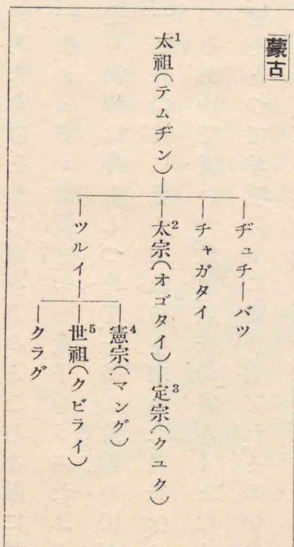 蒙古
太祖1（テムヂン）
ヂュチーバツ
チャガタイ
太宗2（オゴタイ）―定宗3（クユク）
ツルイ
憲宗4（マング）
世祖5（クビライ）
クラグ